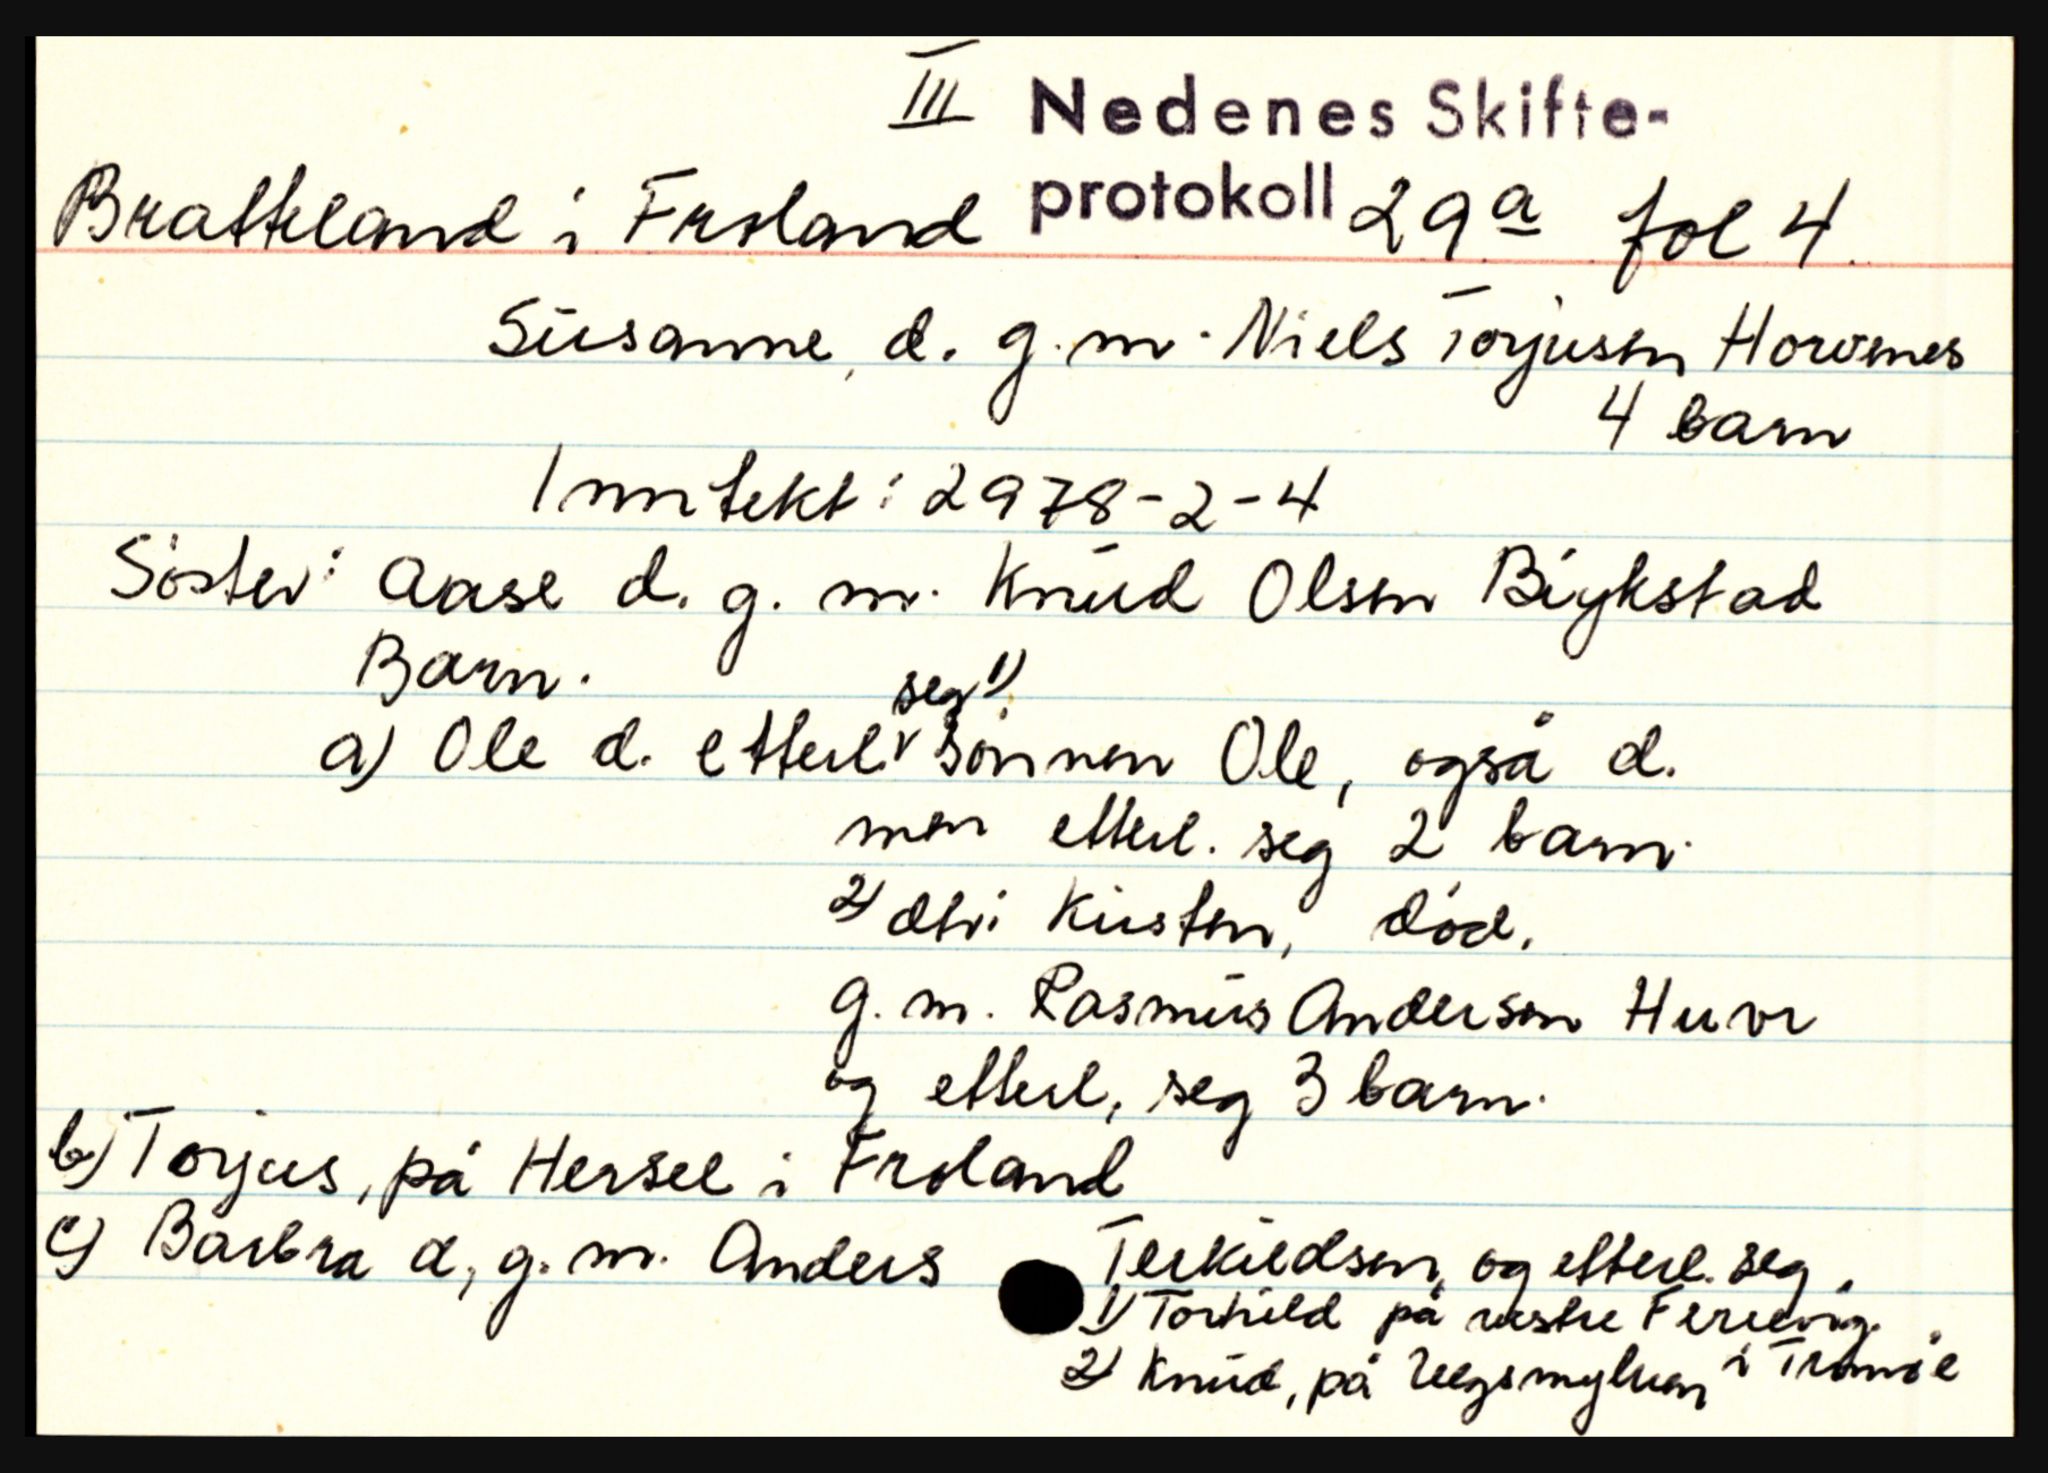 III Nedenes Skifte-
Bratteland i Froland protokoll 29a fol 4.
Susanne, d. g. m. Niels Torjusen Horvenes
4 barn
Inntekt: 2978-2-4
Søster: Aase d. g. m. Knud Olsen Bigkstad
Barn.
seg 1)
a) Ole d. etterl. sønnen Ole, også d.
men etterl. seg 2 barn.
2) dtr. Kirsten, død.
g. m. Rasmus Andersen Hurv
og etterl. seg 3 barn.
b) Torjus, på Hersel i Froland
c) Barbra d, g. m. Anders Terkildsen, og etterl. seg.
1) Torhild på vestre
2) Knud, på i Tromøe